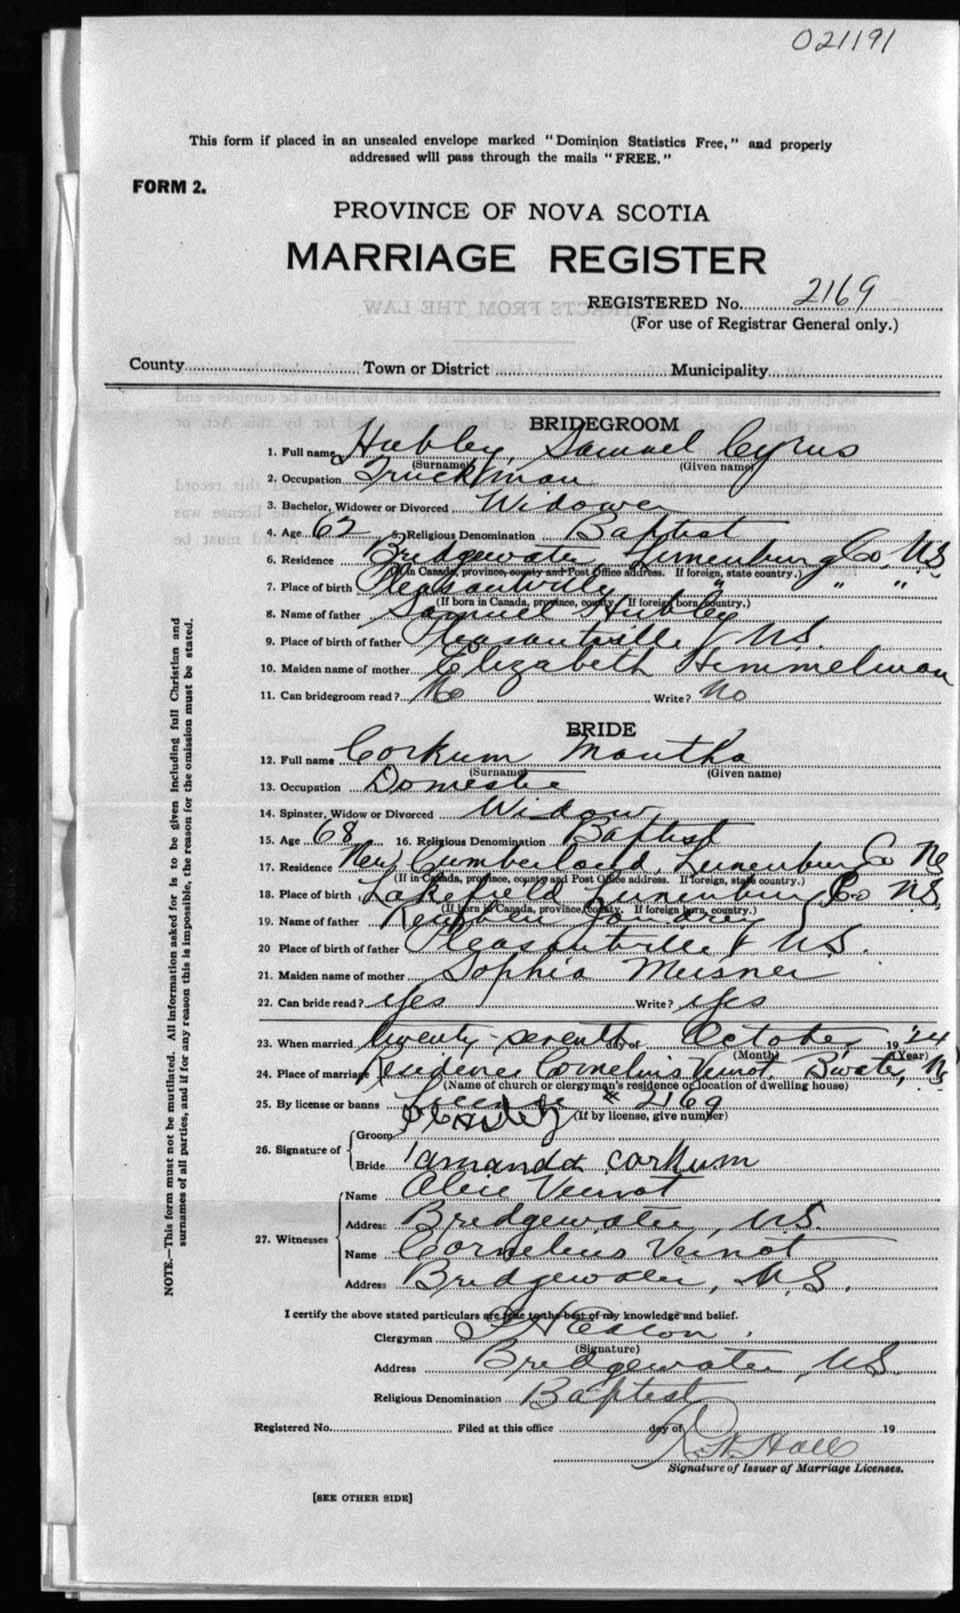 021191
This form if placed in an unsealed envelope marked "Dominion Statistics Free," and properly
addressed will pass through the mails "FREE."
FORM 2.
PROVINCE OF NOVA SCOTIA
MARRIAGE REGISTER
REGISTERED No. 2169
(For use of Registrar General only.)
County Town or District Municipality
BRIDEGROOM
1. Full name Hubley, Samuel Cyrus
(Surname) (Given name)
2. Occupation Truckman
3. Bachelor, Widower or Divorced Widower
4. Age 62 5. Religious Denomination Baptist
6. Residence Bridgewater, Lunenburg Co, N.S.
(If in Canada, province, county and Post Office address. If foreign, state country.)
7. Place of birth Pleasantville " " "
(If born in Canada, province, county. If foreign born, country.)
8. Name of father Samuel Hubley
9. Place of birth of father Pleasantville, N.S.
10. Maiden name of mother Elizabeth Himmelman
11. Can bridegroom read? No Write? No
BRIDE
12. Full name Corkum Mantha
(Surname) (Given name)
13. Occupation Domestic
14. Spinster, Widow or Divorced Widow
15. Age 68 16. Religious Denomination Baptist
17. Residence New Cumberland, Lunenburg Co NS
(If in Canada, province, county and Post Office address. If foreign, state country.)
18. Place of birth Lakefield Lunenburg Co N.S.
(If born in Canada, province, county. If foreign born, country.)
19. Name of father Reuben
20 Place of birth of father Pleasantville N.S.
21. Maiden name of mother Sophia Meisner
22. Can bride read? Yes Write? Yes
23. When married twenty-seventh day of October, 19'24
(Month) (Year)
24. Place of marriage Residence Cornelius Veinot, B'water, NS
(Name of church or clergyman's residence or location of dwelling house)
25. By license or banns License # 2169
(If by license, give number)
26. Signature of
Groom
Bride amanda corkum
27. Witnesses
Name Alice Veinot
Address Bridgewater, N.S.
Name Cornelius Veinot
Address Bridgewater, N.S.
I certify the above stated particulars are true to the best of my knowledge and belief.
Clergyman
(Signature)
Address Bridgewater, N.S.
Religious Denomination Baptist
Registered No. Filed at this office day of 19
Hall
Signature of Issuer of Marriage Licenses.
[SEE OTHER SIDE]
NOTE.—This form must not be mutilated. All information asked for is to be given including full Christian and
surnames of all parties, and if for any reason this is impossible, the reason for the omission must be stated.